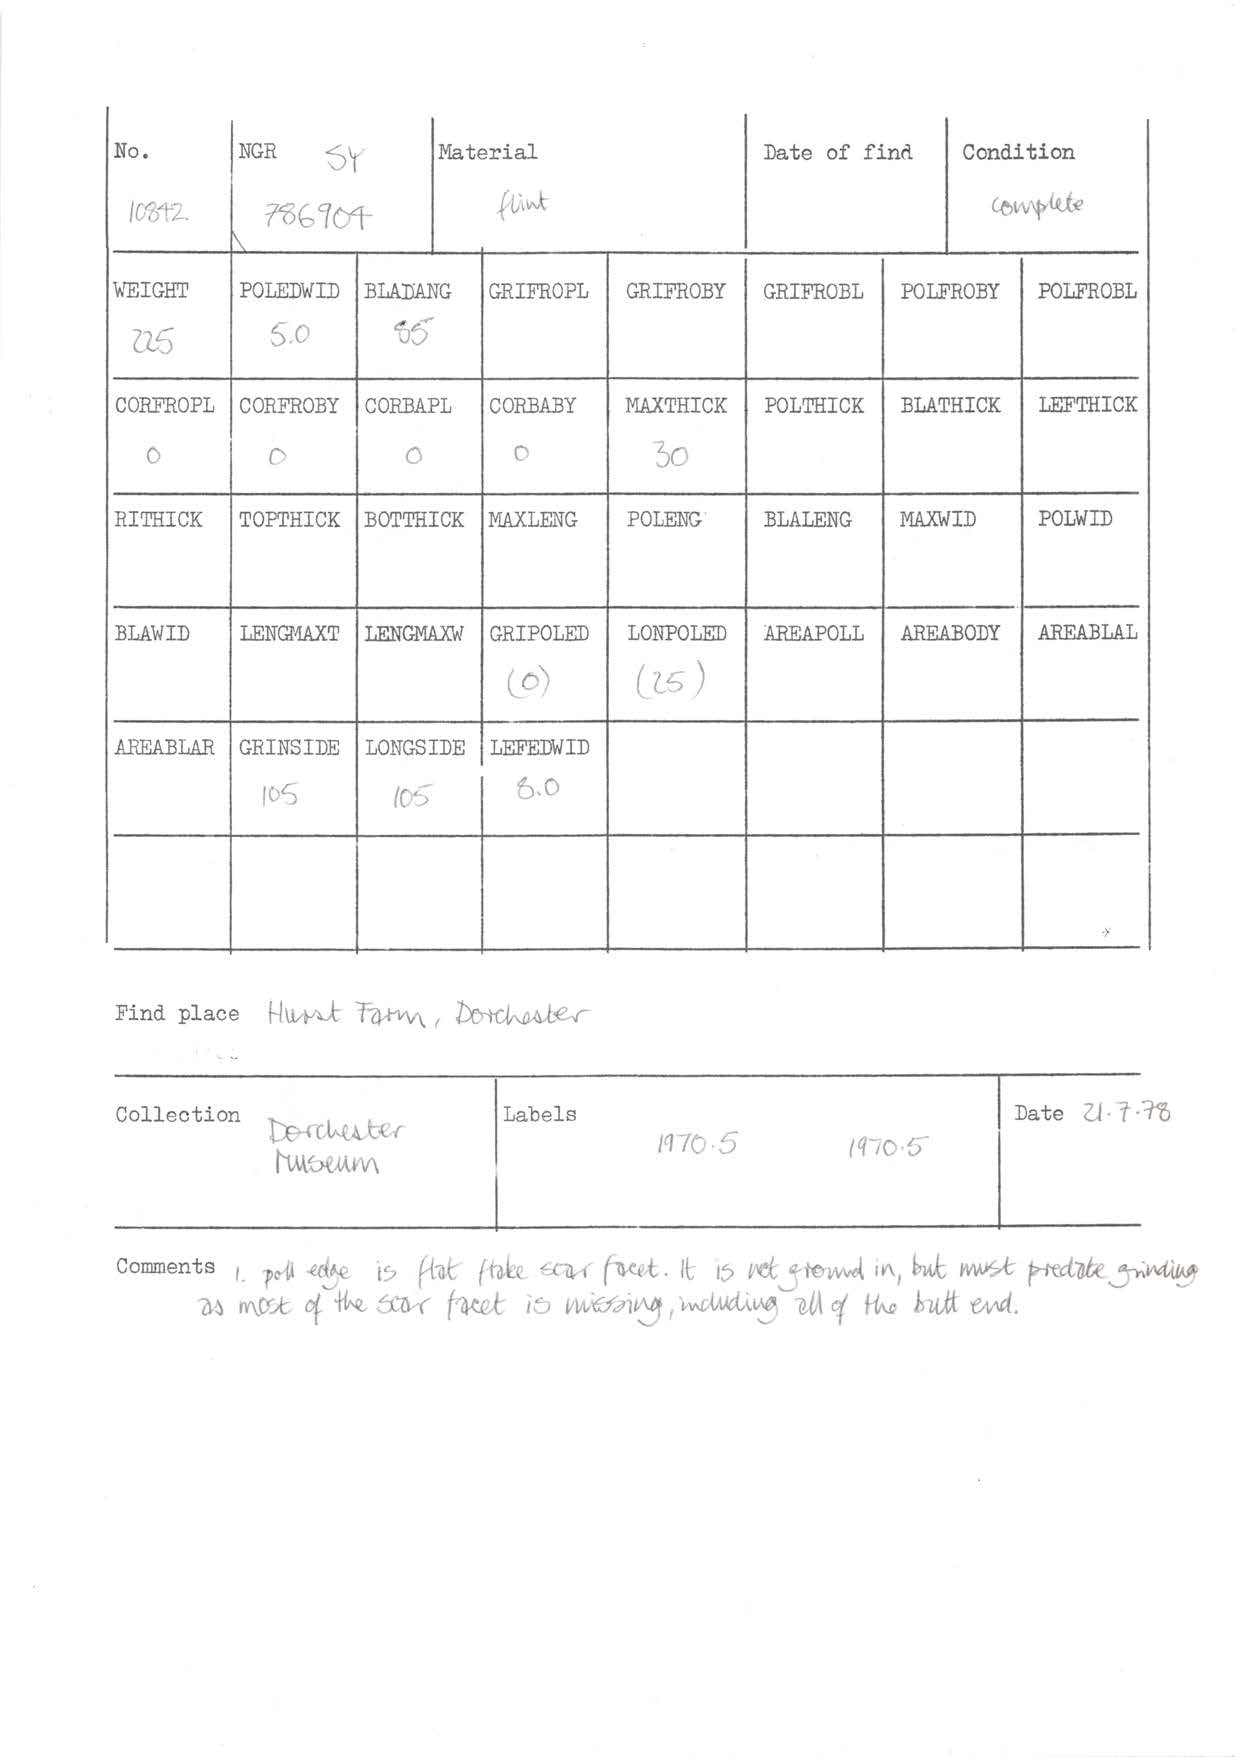 No. NGR SY Material Date of find Condition
10842 786904 flint complete
WEIGHT POLEDWID BLADANG GRIFROPL GRIFROBY GRIFROBL POLFROBY POLFROBL
225 5.0
CORFROPL CORFROBY CORBAPL CORBABY MAXTHICK POLTHICK BLATHICK LEFTHICK
0 0 0 0 30
RITHICK TOPTHICK BOTTHICK MAXLENG POLENG BLALENG MAXWID POLWID
BLAWID LENGMAXT LENGMAXW GRIPOLED LONPOLED AREAPOLL AREABODY AREABLAL
(0) (25)
AREABLAR GRINSIDE LONGSIDE LEFEDWID
105 105 8.0
Find place Hurst Farm, Dorchester
Collection Dorchester Museum Labels 1970.5 1970.5 Date 21.7.78
Comments 1. poll edge is flat flake scar facet. It is not ground in, but must predate grinding
as most of the scar facet is missing, including all of the butt end.